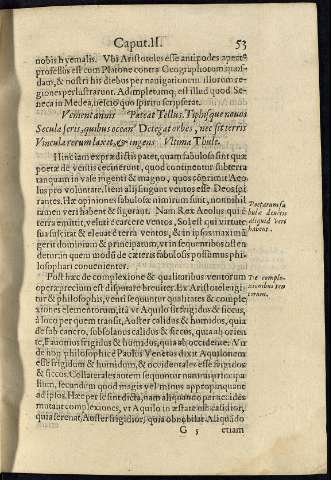 Caput.II. 53
nobis hyemalis. Vbi Aristoteles esse antipodes aperte
professus est cum Platone contra Geographorum quos-
dam, & nostri his diebus per navigationem illorum re-
giones perlustrarunt. Adimpletumq; est illud quod Se-
neca in Medea, nescio quo spiritu scripserat.
Venient annis Pateat Tellus. Tiphisque nouos
Secula seris, quibus ocean9 Detegat orbes, nec sit terris
Vincula rerum laxet, & ingens Vltima Thule.
Hinc iam ex prædictis patet, quam fabulosa sint quæ
poetæ de ventis cecinerunt, quod continentur subterra
tanquam in vale ingenti & magno, quos coërcuit Aeo-
lus pro voluntate. Item alij sungunt ventos esse Deos
rantes. Hæ opiniones fabulosæ nimirum sunt, nonnihil
tamen veri habent & figurant. Nam Rex Aeolus qui è
terra emittit, veluti è carcere ventos, Sol est qui virtute
sua suscitat & eleuat è terra ventos, & in ipsos
gerit dominium & principatum, vt in sequentibus
detur, in quem modũ de cæteris fabulosis possumus phi-
losophari conuenienter.
Poetarum fa
bulæ de ventis
aliquid veri
habent.
Post hæc de complexione & qualitatibus ventorum
operæprecium est disputare breuiter. Ex Aristotele
tur & philosophis, venti sequuntur qualitates & comple
xiones elementorum, ita vt Aquilo sit frigidus & siccus,
à loco per quem transit, Auster calidus & humidus, quia
de sub cancro, subsolanus calidus & siccus, quia ab orien
te, Fauonius frigidus & humidus, quia ab occidente. Vir
de nõq; philosophicè Paulus Venetus dixit Aquilonem
esse frigidum & humidum, & occidentales esse frigidos
& siccos. Collaterales autem sequuntur naturã principa-
lium, secundum quod magis vel minus appropinquant
ad ipsos. Hæc per se sint dicta, nam aliquando per accidẽs
mutant complexiones, vt Aquilo in æstate est calidior,
quia serenat, Auster frigidior, quia obnubilat. Aliquãdo
De comple-
xionibus ven
torum.
G 5 etiam